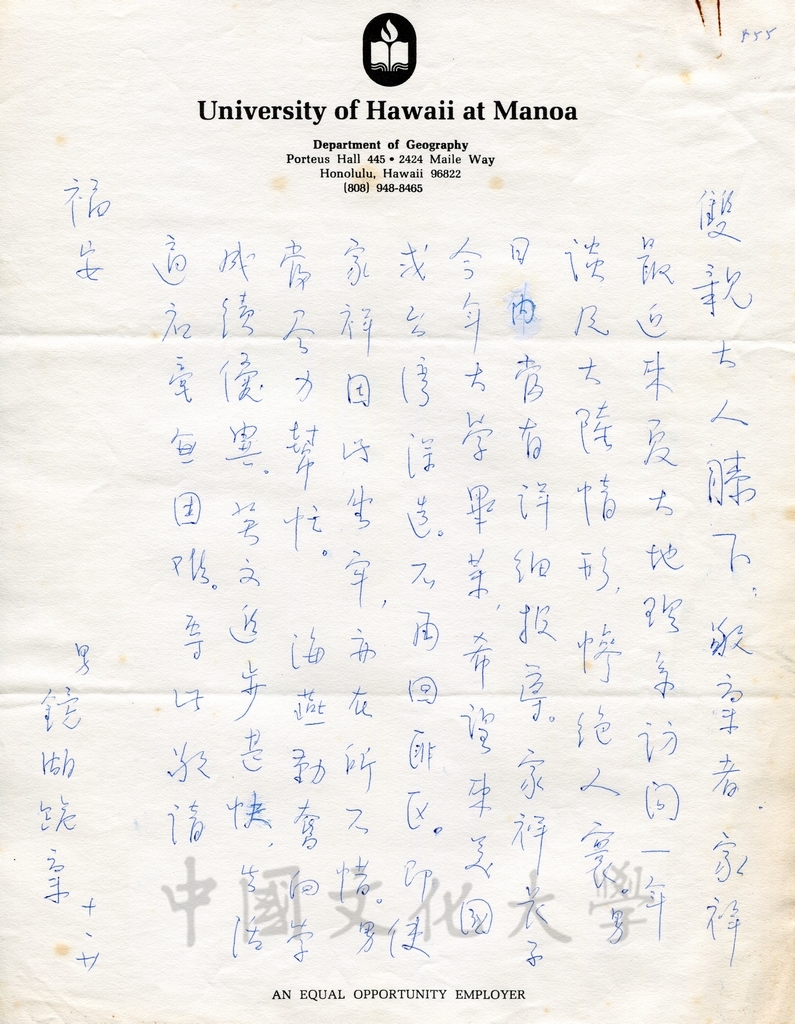 855
University of Hawaii at Manoa
Department of Geography
Porteus Hall 445 • 2424 Maile Way
Honolulu, Hawaii 96822
(808) 948-8465
雙親大人膝下:敬稟者.家祥
最近來夏大地理系訪問一年
談及大陸情形,慘絕人寰。男
日內當有詳細報導。家祥長子
今年大學畢業,希望來美國
或台灣深造。不再回匪區。即使
家祥因此坐牢,亦在所不惜。男
當尽力幫忙。海燕勤奮向學
成績優異。英文進步甚快,生活
適应毫無困难。專此敬請
福安
男
鏡湖跪稟
十一/廿
中國文化大學
AN EQUAL OPPORTUNITY EMPLOYER